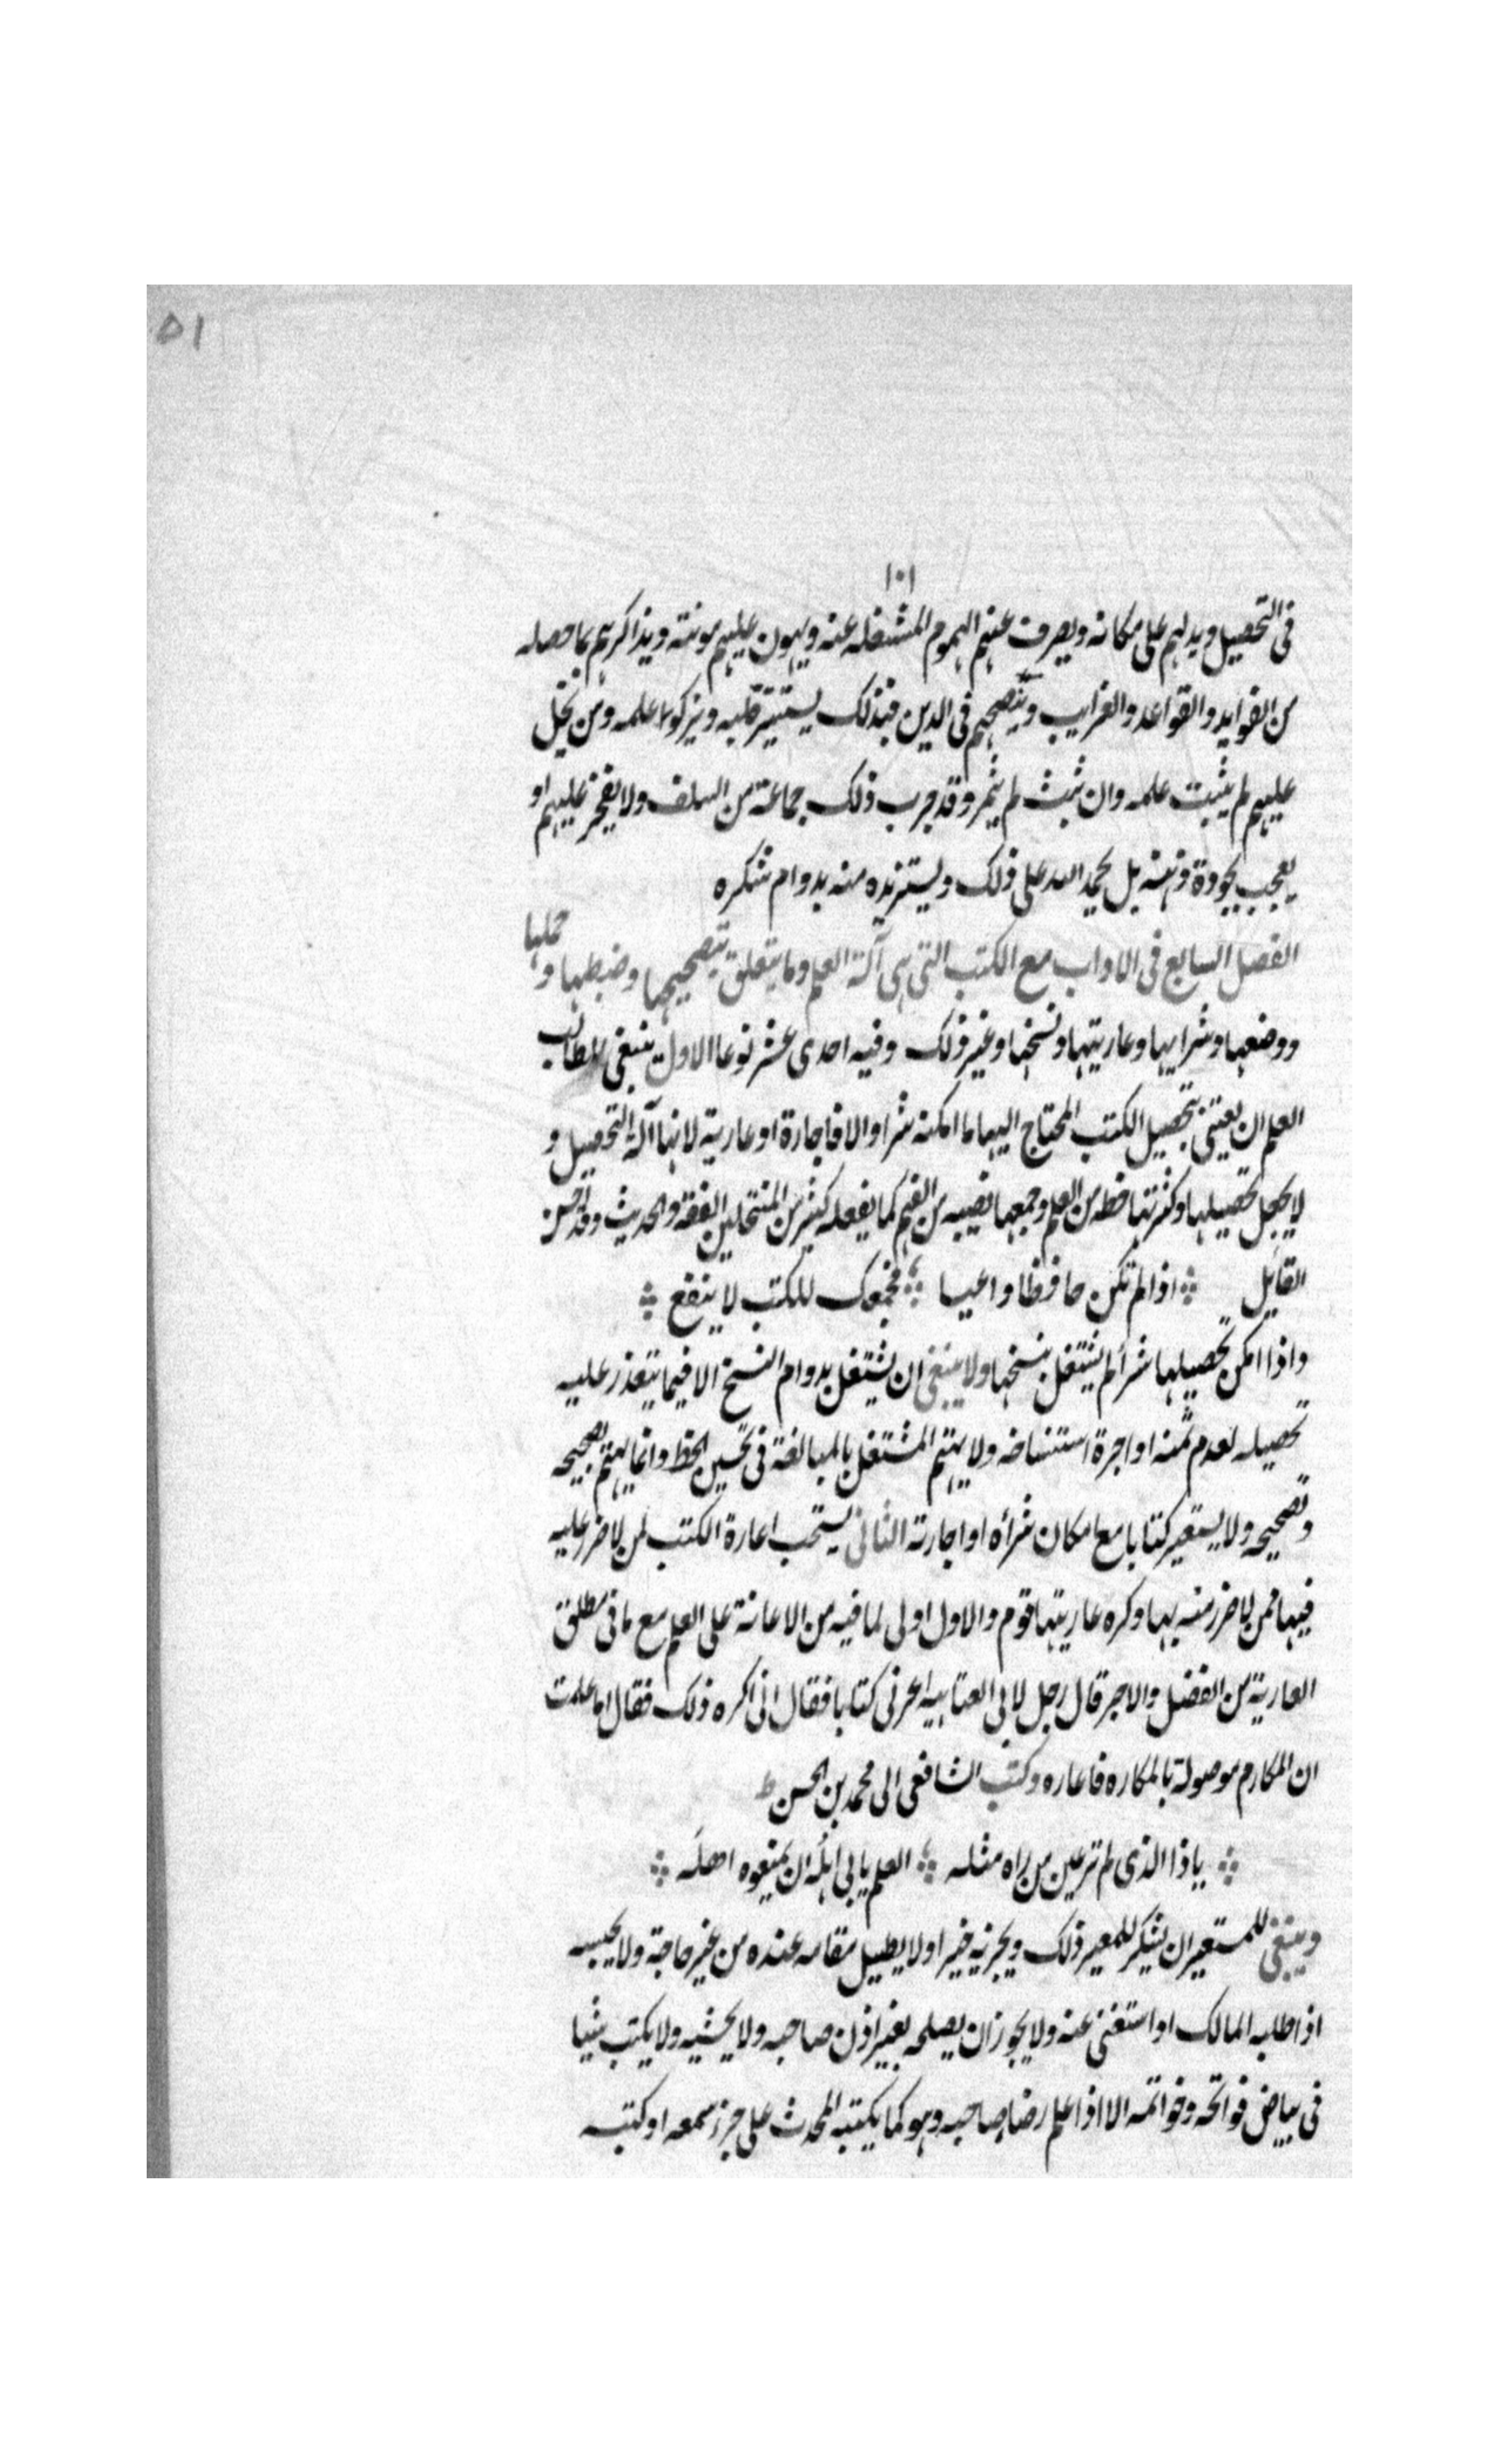 ٥١
١٠١
فى التحصيل ويدلهم على مكانه ويصرف عنهم الهموم المشغله عنه ويهون عليهم مونته ويذاكرهم بما حصله
من الفوايد والقواعد والغرايب وينصحهم فى الدين فبذلك يستنير قلبه ويزكوا علمه ومن بخل
عليهم لم يثبت علمه وان ثبت لم يثمر وقد جرب ذلك جماعة من السلف ولا يفخر عليهم او
يعجب بجودة ذهنه بل يحمد الله على ذلك ويستزيده منه بدوام شكره
الفصل السابع فى الاداب مع الكتب التى هى آلة العلم وما يتعلق بتصحيحها وضبطها و حملها
ووضعها وشرايها وعاريتها ونسخها وغير ذلك وفيه احدى عشر نوعا الاول ينبغى للطالب
العلم ان يعتنى بتحصيل الكتب المحتاج اليها ما امكنه شرا والا فاجارة او عارية لانها آلة التحصيل و
لا يجعل تحصيلها وكثرتها حظه من العلم وجمعها نصيبه من الفهم كما يفعله كثير من المنتحلين الفقه والحديث وقد احسن
القايل ۞ اذا لم تكن حافظا واعيا ۞ فجمعك للكتب لا ينفع ۞
واذا امكن تحصيلها شرأ لم يشتغل بنسخها ولا ينبغى ان يشتغل بدوام النسخ الا فيما يتعذر عليه
تحصيله لعدم ثمنه او اجرة استنساخه ولا يهتم المشتغل بالمبالغة فى تحسين الخط وانما يهتم بصحيحه
وتصحيحه ولا يستعير كتابا مع امكان شرأه او اجارته الثانى يستحب اعارة الكتب لمن لا ضرر عليه
فيها فمن لا ضرر منه بها وكره عاريتها قوم والاول اولى لما فيه من الاعانة على العلم مع ما فى مطلق
العارية من الفضل والاجر قال رجل لابى العتابيه اعرنى كتابا فقال انى اكره ذلك فقال اما علمت
ان المكارم موصولة بالمكاره فاعاره وكتب الشافعى الى محمد بن الحسن
۞ يا ذا الذى لم تر عين من راه مثله ۞ العلم يابى اهله ان يمنعوه اهله ۞
وينبغى للمستعير ان يشكر للمعير ذلك ويجزيه خيرا ولا يطيل مقامه عنده من غير حاجة ولا يحبسه
اذا طلبه المالك او استغنى عنه ولا يجوز ان يصلحه بغير اذن صاحبه ولا يحشيه ولا يكتب شيا
فى بياض فواتحه وخواتمه الا اذا علم رضا صاحبه وهو كما يكتبه المحدث على جزء سمعه او كتبه